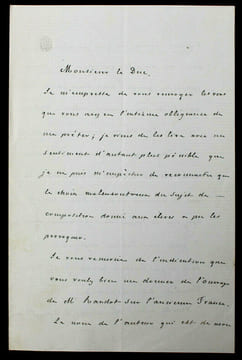 Monsieur le Duc,
Je m'empresse de vous renvoyer les vers
que vous avez eu l'extrême obligeance de
me prêter; je viens de les lire avec un
sentiment d'autant plus pénible que
je ne puis m'empêcher de reconnaître que
le choix malencontreux du sujet de
composition donné aux élèves a pu les
provoquer.
Je vous remercie de l'indication que
vous voulez bien me donner de l'ouvrage
de M. Raudot sur l'ancienne France.
Le nom de l'auteur qui est de mes